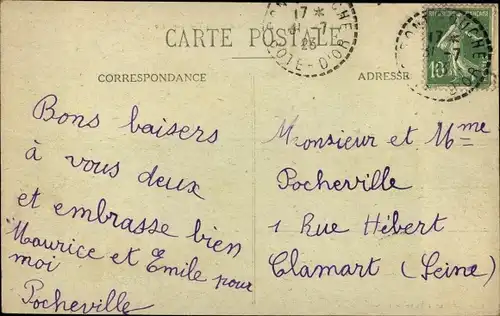 CARTE POSTALE
CORRESPONDANCE
ADRESSE
17 *
31 -7
23
COTE-D'OR
Bons baisers
à vous deux
et embrasse bien
Maurice et Emile pour
moi
Pocheville
Monsieur et Mme
Pocheville
1 Rue Hébert
Clamart (Seine)